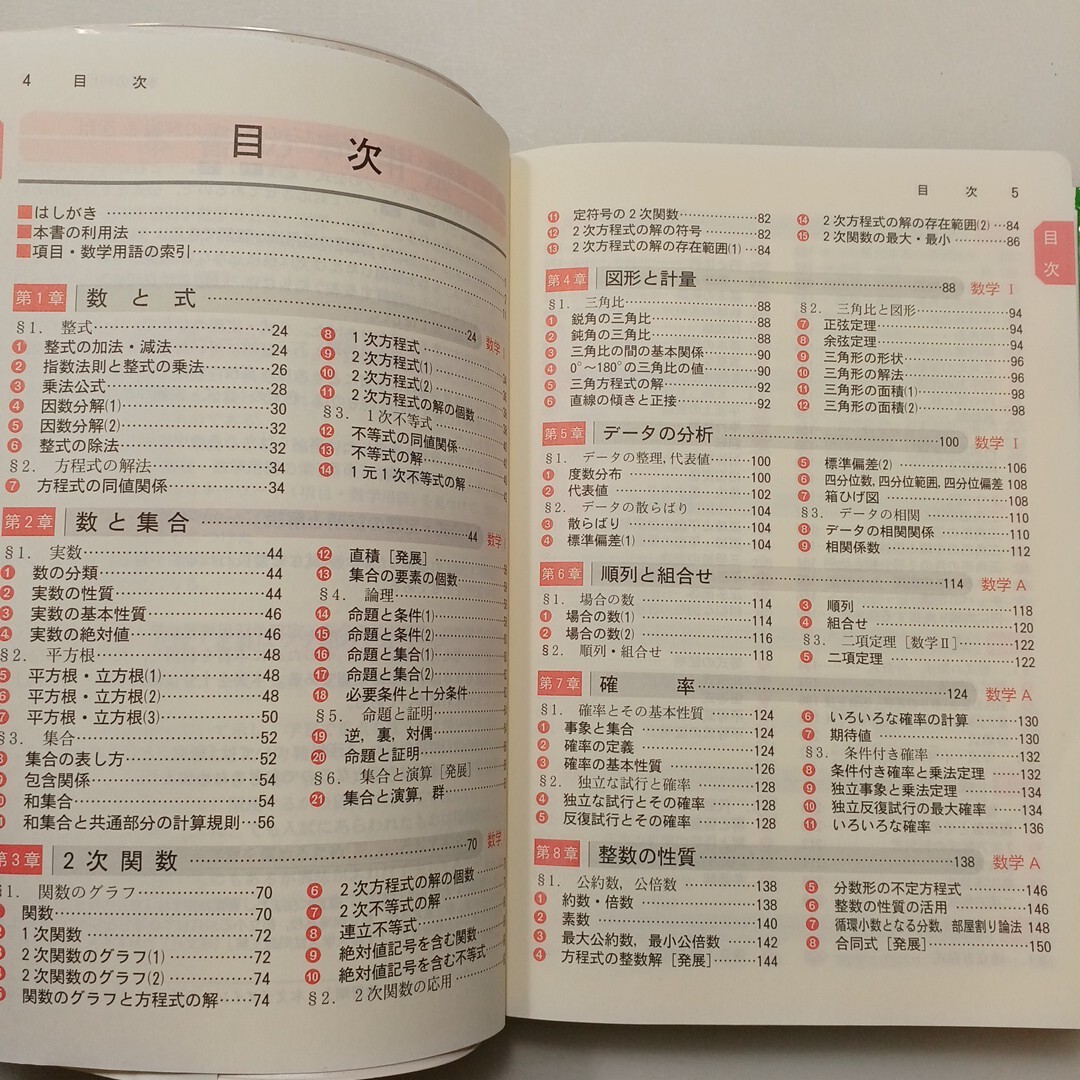 4 目 次
目 次
■はしがき
■本書の利用法
■項目・数学用語の索引
第1章 数と式 24 数学
§1. 整式 24
1 整式の加法・減法 24
2 指数法則と整式の乗法 26
3 乗法公式 28
4 因数分解(1) 30
5 因数分解(2) 32
6 整式の除法 32
§2. 方程式の解法 34
7 方程式の同値関係 34
8 1次方程式
9 2次方程式(1)
10 2次方程式(2)
11 2次方程式の解の個数
§3. 1次不等式
12 不等式の同値関係
13 不等式の解
14 1元1次不等式の解
第2章 数と集合 44 数学
§1. 実数 44
1 数の分類 44
2 実数の性質 44
3 実数の基本性質 46
4 実数の絶対値 46
§2. 平方根 48
5 平方根・立方根(1) 48
6 平方根・立方根(2) 48
7 平方根・立方根(3) 50
§3. 集合 52
集合の表し方 52
包含関係 54
和集合 54
和集合と共通部分の計算規則 56
12 直積[発展]
13 集合の要素の個数
§4. 論理
14 命題と条件(1)
15 命題と条件(2)
16 命題と集合(1)
17 命題と集合(2)
18 必要条件と十分条件
§5. 命題と証明
19 逆，裏，対偶
20 命題と証明
§6. 集合と演算[発展]
21 集合と演算，群
第3章 2次関数 70 数学
§1. 関数のグラフ 70
関数 70
1次関数 72
2次関数のグラフ(1) 72
2次関数のグラフ(2) 74
関数のグラフと方程式の解 74
6 2次方程式の解の個数
7 2次不等式の解
8 連立不等式
9 絶対値記号を含む関数
10 絶対値記号を含む不等式
§2. 2次関数の応用
目 次 5
目次
11 定符号の2次関数 82
12 2次方程式の解の符号 82
13 2次方程式の解の存在範囲(1) 84
14 2次方程式の解の存在範囲(2) 84
15 2次関数の最大・最小 86
第4章 図形と計量 88 数学Ⅰ
§1. 三角比 88
1 鋭角の三角比 88
2 鈍角の三角比 88
3 三角比の間の基本関係 90
4 0°～180°の三角比の値 90
5 三角方程式の解 92
6 直線の傾きと正接 92
§2. 三角比と図形 94
7 正弦定理 94
8 余弦定理 94
9 三角形の形状 96
10 三角形の解法 96
11 三角形の面積(1) 98
12 三角形の面積(2) 98
第5章 データの分析 100 数学Ⅰ
§1. データの整理,代表値 100
1 度数分布 100
2 代表値 102
§2. データの散らばり 104
3 散らばり 104
4 標準偏差(1) 104
5 標準偏差(2) 106
6 四分位数, 四分位範囲, 四分位偏差 108
7 箱ひげ図 108
§3. データの相関 110
8 データの相関関係 110
9 相関係数 112
第6章 順列と組合せ 114 数学A
§1. 場合の数 114
1 場合の数(1) 114
2 場合の数(2) 116
§2. 順列・組合せ 118
3 順列 118
4 組合せ 120
§3. 二項定理[数学Ⅱ] 122
5 二項定理 122
第7章 確率 124 数学A
§1. 確率とその基本性質 124
1 事象と集合 124
2 確率の定義 124
3 確率の基本性質 126
§2. 独立な試行と確率 128
4 独立な試行とその確率 128
5 反復試行とその確率 128
6 いろいろな確率の計算 130
7 期待値 130
§3. 条件付き確率 132
8 条件付き確率と乗法定理 132
9 独立事象と乗法定理 134
10 独立反復試行の最大確率 134
11 いろいろな確率 136
第8章 整数の性質 138 数学A
§1. 公約数，公倍数 138
1 約数・倍数 138
2 素数 140
3 最大公約数，最小公倍数 142
4 方程式の整数解[発展] 144
5 分数形の不定方程式 146
6 整数の性質の活用 146
7 循環小数となる分数，部屋割り論法 148
8 合同式[発展] 150